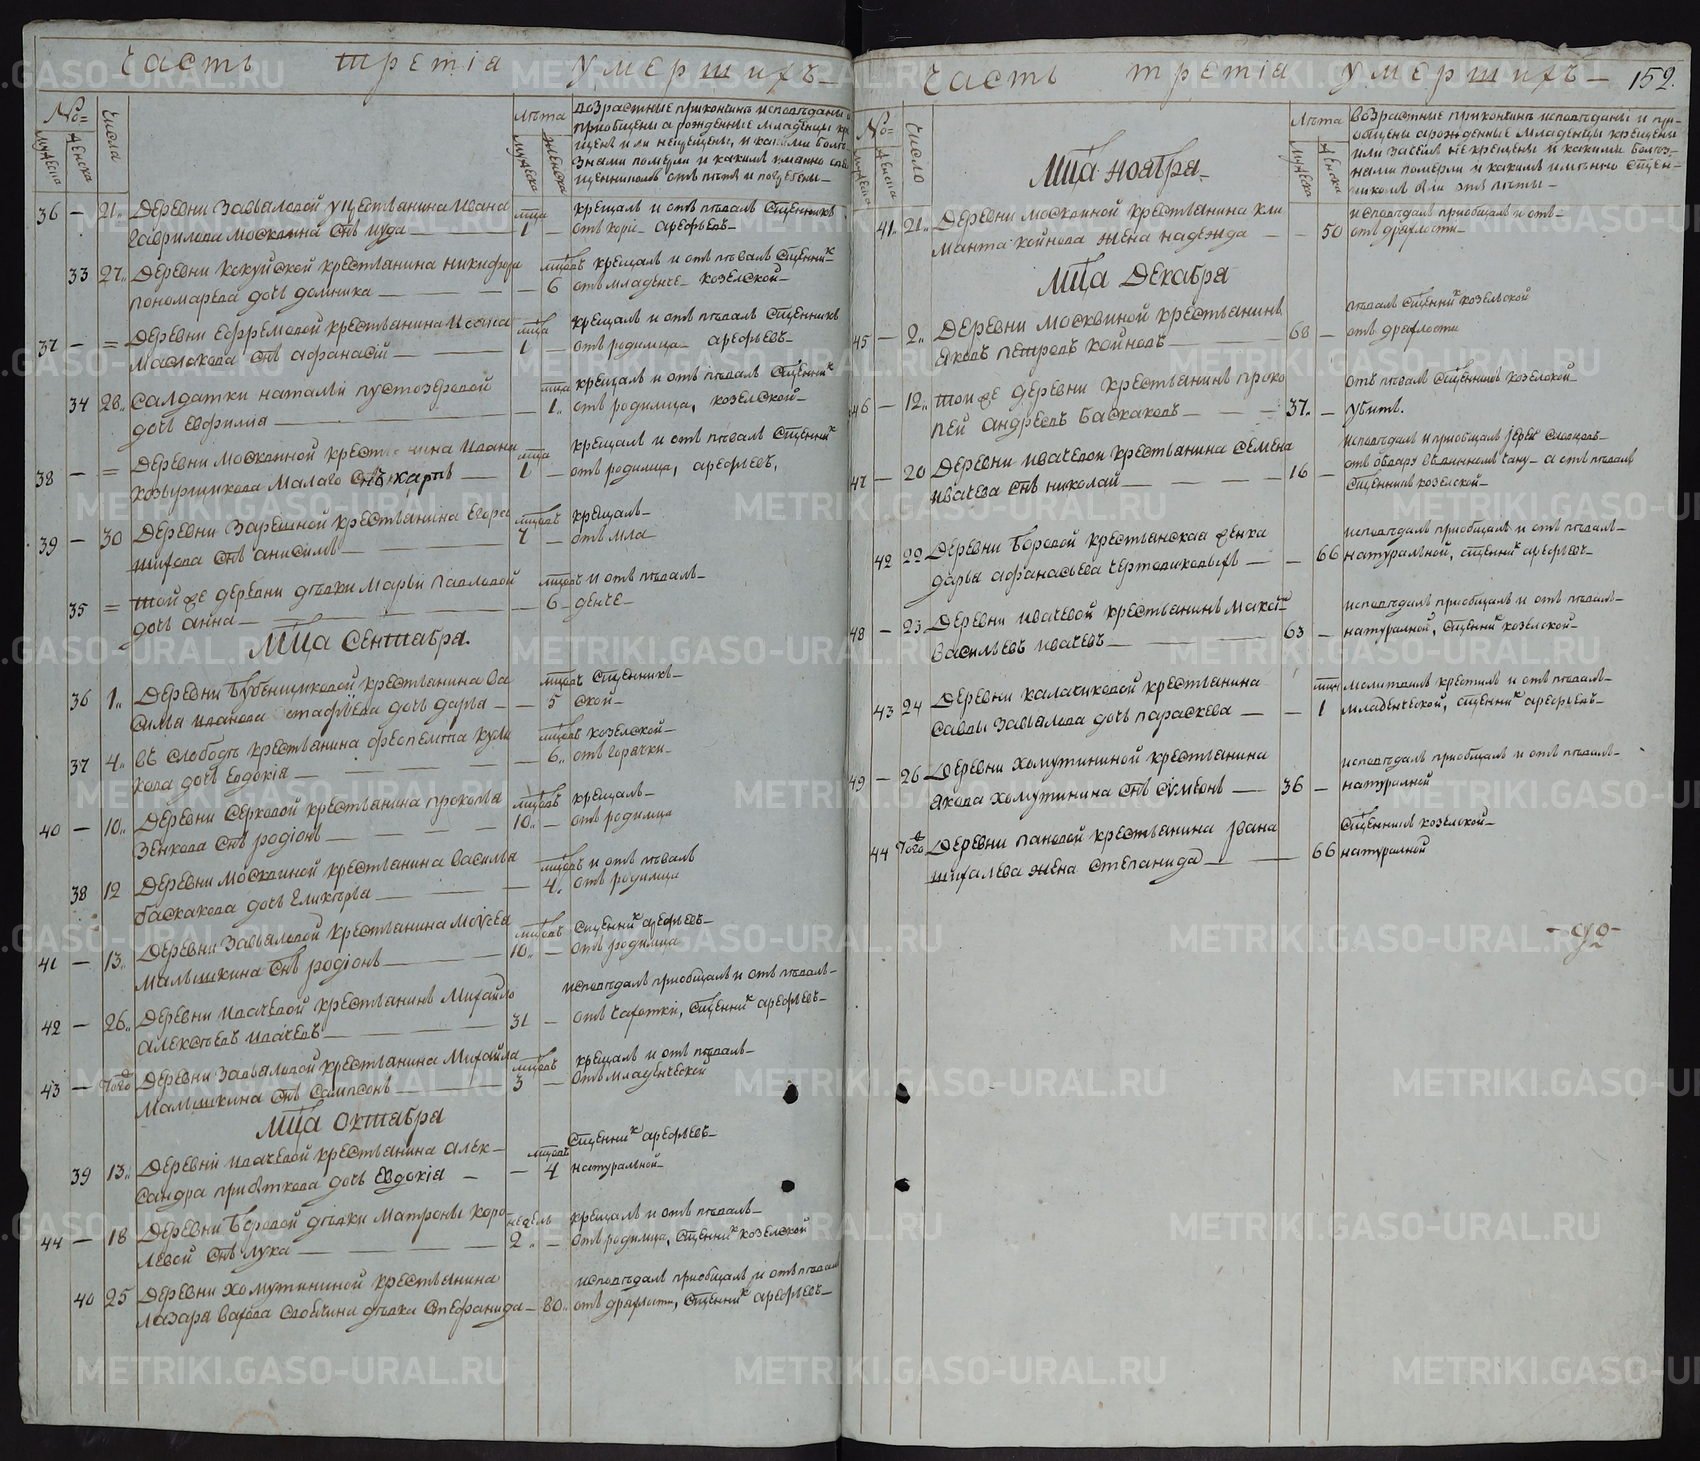 Часть третія умершихъ
№
Числа
Лѣта
мужеска
женска
возрастные при кончинѣ исповѣданы и
приобщены а рожденные младенцы кре
щены или не крещены, и какими болѣз
знами померли и какимъ имянно свя
щенникомъ отпѣты и погребены
36 — 21. Деревни Завьяловой крестьянина Ивана
Гаврилова Москвина снъ Иуда 1
крещалъ и отпѣвалъ священникъ
отъ кори Арефьевъ
33 27. Деревни Кокуйской крестьянина Никифора
Пономарева дочь Домника — 6
крещалъ и отпѣвалъ священникъ
отъ младенче Козелской
37 — = Деревни Ефремовой крестьянина Иоанна
Маслокова снъ Афанасій 1
крещалъ и отпѣвалъ священникъ
отъ родимца Арефьевъ
34 28. Салдатки Натальи Пустозеровой
дочь Евфимія — 1
крещалъ и отпѣвалъ священникъ
отъ родимца, Козелской
38 — = Деревни Москвиной крестьянина Ивана
Малаго снъ Карпъ 1
крещалъ и отпѣвалъ священникъ
отъ родимца, Арефьевъ
39 — 30 Деревни Зарешной крестьянина Егора
снъ Анисимъ 7
крещалъ
отъ мла
35 = той же деревни дѣвки Марьи Павловой
дочь Анна — 6
и отпѣвалъ
денче
Мца Сентября
36 1. Деревни Бубенщиковой крестьянина Ва
силья Иванова Остафьева дочь Дарья — 5
священникъ
ской
37 4. въ слободѣ крестьянина Феопемпта Кули
кова дочь Евдокія — 6
Козелской
отъ горячки
40 — 10. Деревни Серковой крестьянина Прокопья
Зенкова снъ Родіонъ 10
крещалъ
отъ родимца
38 12 Деревни Москвиной крестьянина Василья
Баскакова дочь Гликерья — 4
и отпѣвалъ
отъ родимца
41 — 13. Деревни Завьяловой крестьянина Моисея
Малышкина снъ Родіонъ 10
священникъ Арефьевъ
отъ родимца
42 — 26. Деревни Ивачевой крестьянинъ Михайло
Алексѣевъ Ивачевъ 31
исповѣдалъ приобщалъ и отпѣвалъ
отъ чахотки, священникъ Арефьевъ
43 — Того Деревни Завьяловой крестьянина Михайла
Малышкина снъ Сампсонъ 3
крещалъ и отпѣвалъ
отъ младенческой
Мца Октября
39 13. Деревни Ивачевой крестьянина Алек
сандра Прибыткова дочь Евдокія — 4
священникъ Арефьевъ
натуралной
44 — 18 Деревни Боровой дѣвки Матроны Коро
левой снъ Лука недель 2
крещалъ и отпѣвалъ
отъ родимца, священникъ Козелской
40 25 Деревни Хомутининой крестьянина
Лазаря дѣвка Стефанида 80
исповѣдалъ приобщалъ и отпѣвалъ
отъ древности, священникъ Арефьевъ
Часть третія умершихъ 152.
№
Число
Лѣта
мужеска
женска
возрастные при кончинѣ исповѣданы и при
общены а рожденные младенцы крещены
или не крещены и какими болѣз
нами померли и какимъ имянно священ
никомъ отпѣты
Мца Ноября
41. 21. Деревни Москвиной крестьянина Кли
манта Койнова жена Надежда — 50
исповѣдалъ приобщалъ и отпѣ
отъ древности
Мца Декабря
45 — 2. Деревни Москвиной крестьянинъ
Яковъ Петровъ Койновъ 68
пѣвалъ священникъ Козельской
отъ древности
46 — 12. той же деревни крестьянинъ Проко
пей Андреевъ Баскаковъ 37.
отпѣвалъ священникъ Козелской
убитъ.
47 — 20 Деревни Ивачевой крестьянина Семена
Ивачева снъ Николай 16
исповѣдалъ и приобщалъ Іерей
отъ обвару въ винномъ чану а отпѣвалъ
священникъ Козелской
42 22 Деревни Боровой крестьянская женка
Дарья Афанасьева — 66
исповѣдалъ приобщалъ и отпѣвалъ
натуральной, священникъ Арефьевъ
48 — 23 Деревни Ивачевой крестьянинъ Макай
Васильевъ Ивачевъ 63
исповѣдалъ приобщалъ и отпѣвалъ
натуралной, священникъ Козелской
43 24 Деревни Калачиковой крестьянина
Саввы Завьялова дочь Параскева — 1
молитвилъ крестилъ и отпѣвалъ
младенческой, священникъ Арефьевъ
49 — 26 Деревни Хомутининой крестьянина
Якова Хомутинина снъ Сумеонъ 36
исповѣдалъ приобщалъ и отпѣвалъ
натуралной
44 Того Деревни Пановой крестьянина Ивана
Шихалева жена Степанида — 66
священникъ Козелской
натуралной
METRIKI.GASO-URAL.RU